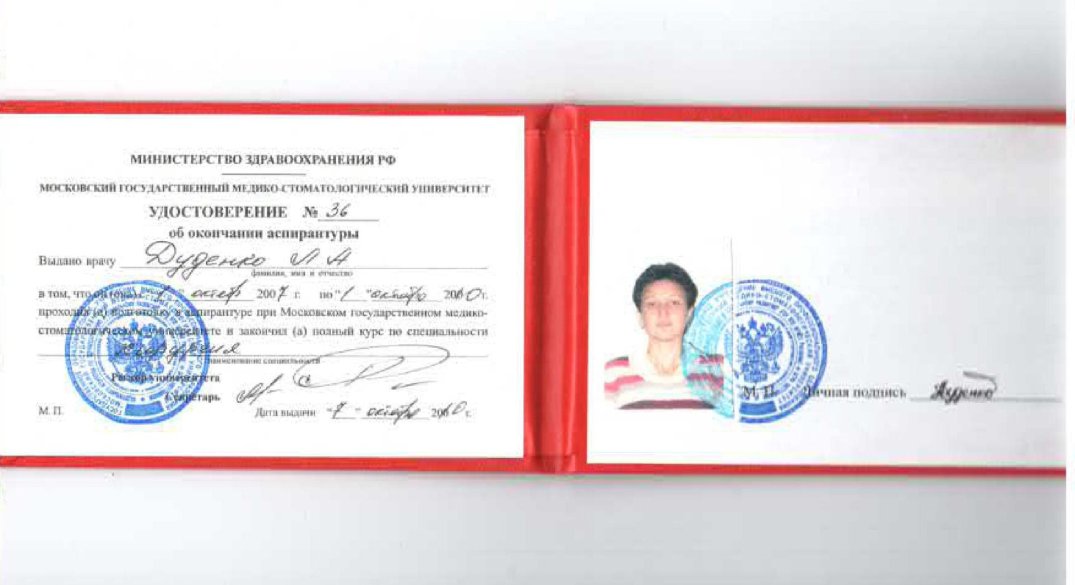 МИНИСТЕРСТВО ЗДРАВООХРАНЕНИЯ РФ
МОСКОВСКИЙ ГОСУДАРСТВЕННЫЙ МЕДИКО-СТОМАТОЛОГИЧЕСКИЙ УНИВЕРСИТЕТ
УДОСТОВЕРЕНИЕ № 36
об окончании аспирантуры
Выдано врачу Дуденко Л А
фамилия, имя и отчество
в том, что он (она) с октября 2007 г. по "1" октября 20 0г.
проходил (а) подготовку в аспирантуре при Московском государственном медико-
стоматологическом университете и закончил (а) полный курс по специальности
Хирургия
наименование специальности
Ректор университета
Секретарь
М. П.
Дата выдачи "7" октября 20 0 г.
М. П. Личная подпись Дуденко